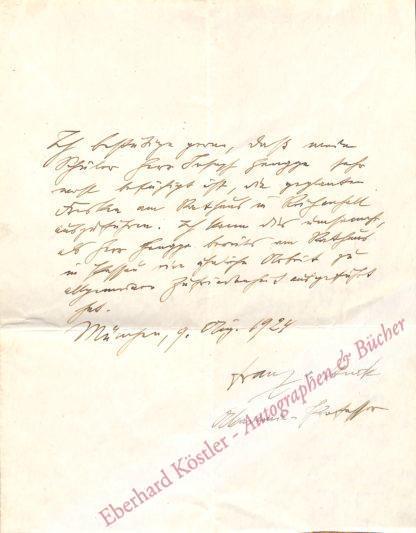 Ich bestätige gerne, daß mein
Schüler Herr Joseph Hengge sehr
wohl befähigt ist, die geplanten
Fresken am Rathaus in Reichenhall
auszuführen. Ich kann dies umsomehr,
als Herr Hengge bereits am Rathaus
in Passau eine ähnliche Arbeit zu
allgemeiner Zufriedenheit ausgeführt
hat.
München, 9. Aug. 1924
Franz
Professor
Eberhard Köstler - Autographen & Bücher